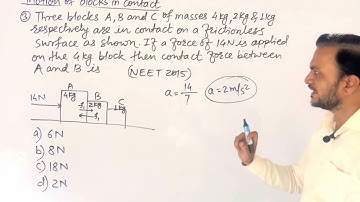 Motion of blocks in contact
③ Three blocks A, B and C of masses 4kg, 2kg & 1kg
respectively are in contact on a frictionless
surface as shown. If a force of 14N is applied
on the 4kg block then contact force between
A and B is (NEET 2015)
a = 14/7
a = 2m/s²
14N
A
4kg
B
2kg
C
1kg
f₁
f₁
a) 6N
b) 8N
c) 18N
d) 2N